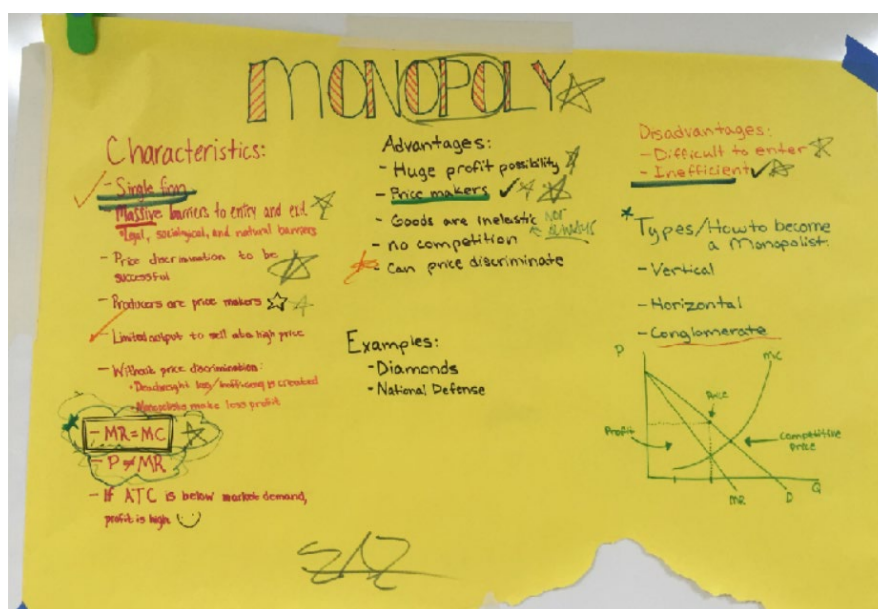 MONOPOLY
Characteristics:
- Single firm
- Massive barriers to entry and exit
*legal, sociological, and natural barriers
- Price discrimination to be
successful
- Producers are price makers
- Limited output to sell at a high price
- Without price discrimination:
• Deadweight loss/inefficiency is created
• Monopolists make less profit
- MR=MC
- P≠MR
- If ATC is below market demand,
profit is high
Advantages:
- Huge profit possibility
- Price makers
- Goods are inelastic
- no competition
- Can price discriminate
Examples:
- Diamonds
- National Defense
Disadvantages:
- Difficult to enter
- Inefficient
* Types/How to become
a Monopolist:
- Vertical
- Horizontal
- Conglomerate
P
MC
Price
Profit
Competitive
Price
MR
D
Q